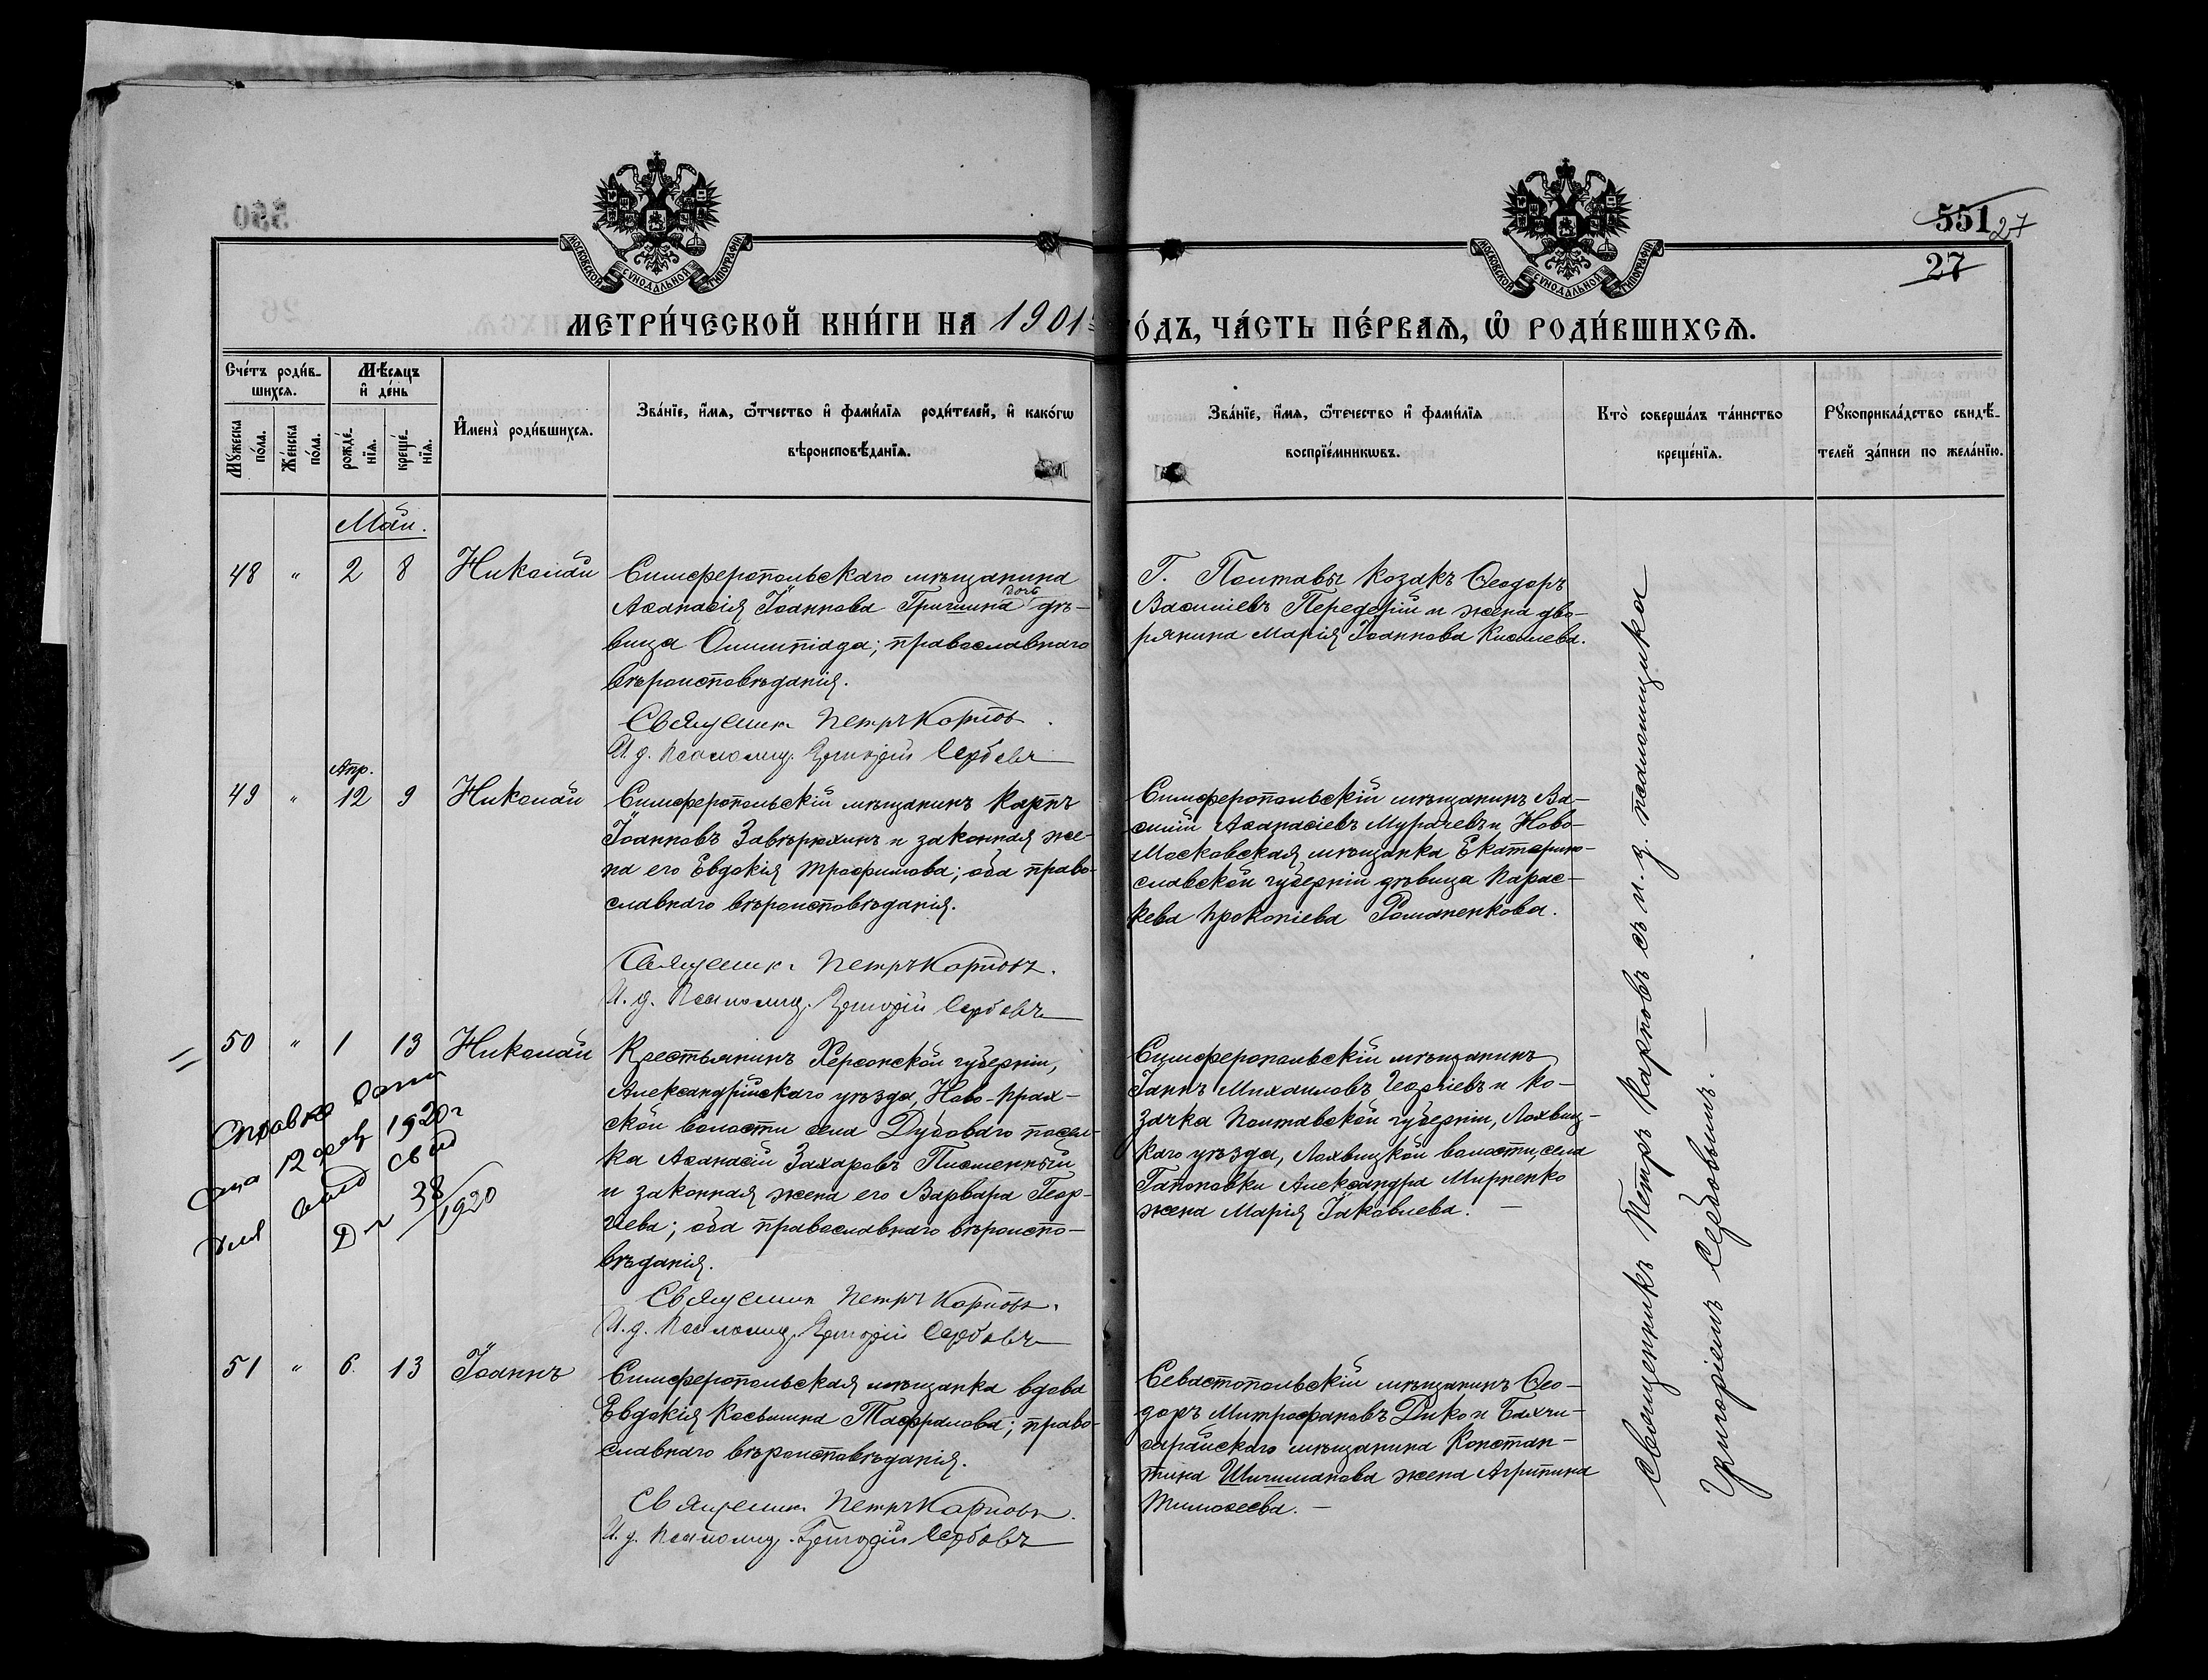 550
551 27
27
МОСКОВСКОЙ СѴНОДАЛЬНОЙ ТИПОГРАФІИ
МОСКОВСКОЙ СѴНОДАЛЬНОЙ ТИПОГРАФІИ
МЕТРИ́ЧЕСКОЙ КНИ́ГИ НА 1901
О́ДЪ, ЧА́СТЬ ПЕ́РВАѦ, Ѽ РОДИ́ВШИХСѦ.
Сче́тъ роди́в-
шихсѧ.
Мѣ́сѧцъ
и҆ де́нь
Мꙋ́жеска
по́ла.
Же́нска
по́ла.
рожде́-
нїѧ.
креще́-
нїѧ.
И҆мена̀ роди́вшихсѧ.
Зва́нїе, и҆́мѧ, ѻ҆́тчество и҆ фами́лїѧ роди́телей, и҆ како́гѡ
вѣроисповѣ́данїѧ.
Зва́нїе, и҆́мѧ, ѻ҆те́чество и҆ фами́лїѧ
воспрїе́мникѡвъ.
Кто̀ соверша́лъ та́инство
креще́нїѧ.
Рꙋкоприкла́дство свидѣ́-
телей за́писи по жела́нїю.
Май.
48 " 2 8 Николай
Симферопольскаго мѣщанина
Аѳанасія Іоаннова Гришина дочь дѣ-
вица Олимпіада; православнаго
вѣроисповѣданія.
Священникъ Петръ Карповъ.
И. д. Псаломщ. Григорій Сербовъ
Г. Полтавы козакъ Ѳеодоръ
Василіевъ Передерій и жена дво-
рянина Марія Іоаннова Киселева.
Апр.
49 " 12 9 Николай
Симферопольскій мѣщанинъ Карпъ
Іоанновъ Завѣрюхинъ и законная же-
на его Евдокія Трофимова; оба право-
славнаго вѣроисповѣданія.
Священникъ Петръ Карповъ.
И. д. Псаломщ. Григорій Сербовъ
Симферопольскій мѣщанинъ Ва-
силій Аѳанасіевъ и Ново-
Московская мѣщанка Екатерино-
славской губерніи дѣвица Парас-
кева Прокопіева Романенкова.
50 " 1 13 Николай
Крестьянинъ Херсонской губерніи,
Александрійскаго уѣзда, Ново-Праж-
ской волости села Дубоваго посел-
ка Аѳанасій Захаровъ Писменный
и законная жена его Варвара Геор-
гіева; оба православнаго вѣроиспо-
вѣданія.
Священникъ Петръ Карповъ.
И. д. Псаломщ. Григорій Сербовъ
Симферопольскій мѣщанинъ
Іаннъ Михаиловъ Георгіевъ и ко-
зачка Полтавской губерніи, Лохвиц-
каго уѣзда, Лохвицкой волости, села
Гапоновки Александра Мирненко
жена Марія Іаковлева. —
Справка
12 1920 г
для
Д. № 38/1920
51 " 6. 13 Іоаннъ
Симферопольская мѣщанка вдова
Евдокія Косьмина; право-
славнаго вѣроисповѣданія.
Священникъ Петръ Карповъ.
И. д. Псаломщ. Григорій Сербовъ
Севастопольскій мѣщанинъ Ѳео-
доръ Митрофановъ Дико и Бахчи-
сарайскаго мѣщанина Констан-
тина Шишманова жена Агрипина
Тимоѳеева. —
Священникъ Петръ Карповъ съ и. д. псаломщика
Григоріемъ Сербовымъ. —